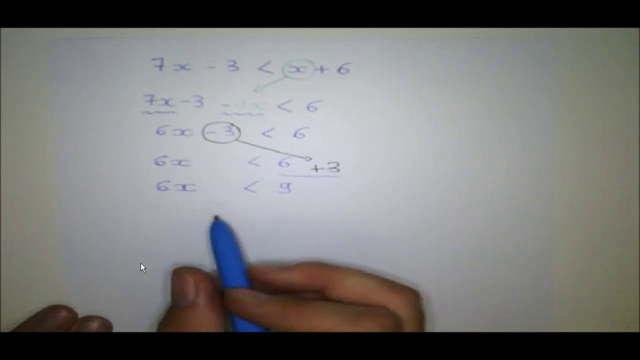 7x - 3 < x + 6
7x - 3 - 1x < 6
6x - 3 < 6
6x < 6 + 3
6x < 9